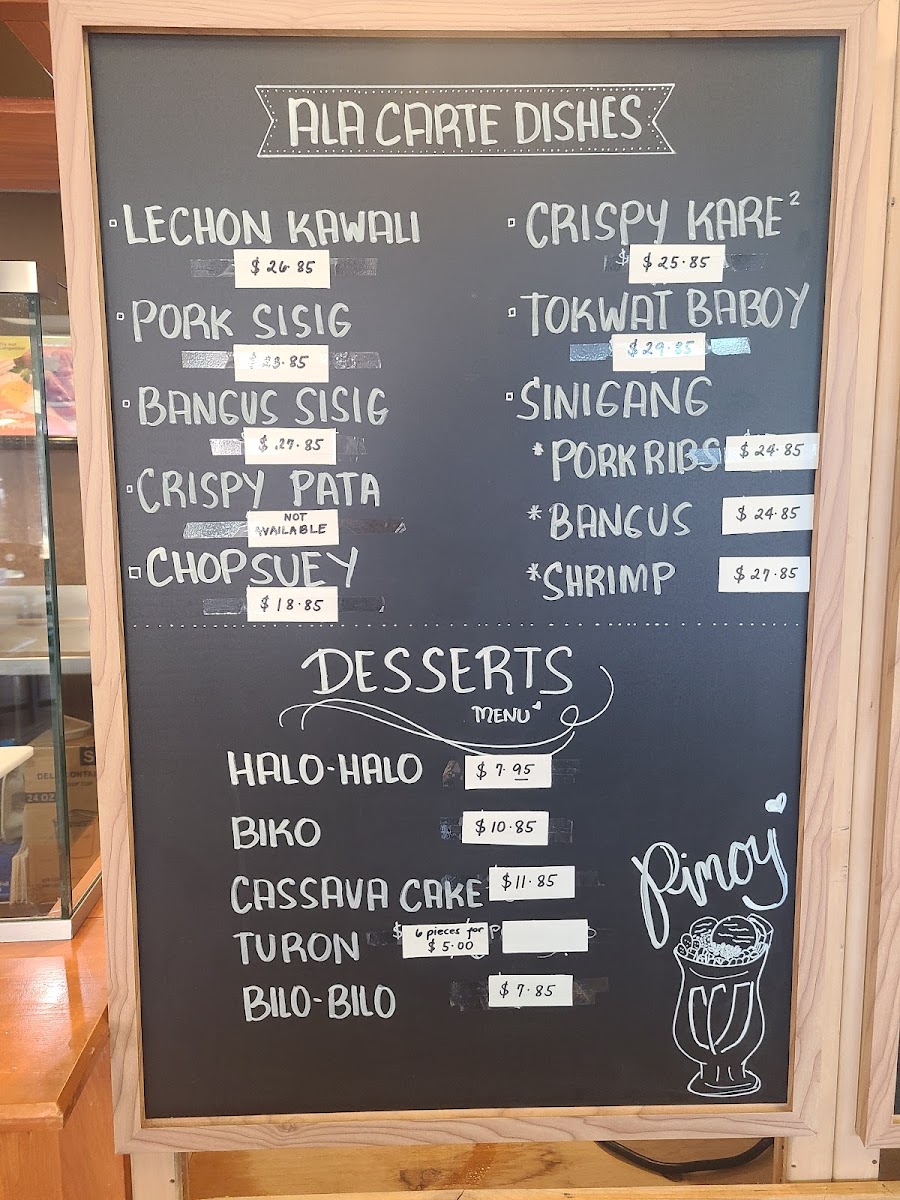 ALA CARTE DISHES
LECHON KAWALI
$ 26.85
PORK SISIG
$ 23.85
BANGUS SISIG
$ 27.85
CRISPY PATA
NOT
AVAILABLE
CHOPSUEY
$ 18.85
CRISPY KARE²
$ 25.85
TOKWAT BABOY
$ 29.85
SINIGANG
* PORK RIBS $ 24.85
* BANGUS $ 24.85
* SHRIMP $ 27.85
DESSERTS
MENU
HALO-HALO $ 7.95
BIKO $ 10.85
CASSAVA CAKE $11.85
TURON 6 pieces for
$ 5.00
BILO-BILO $ 7.85
Pinoy